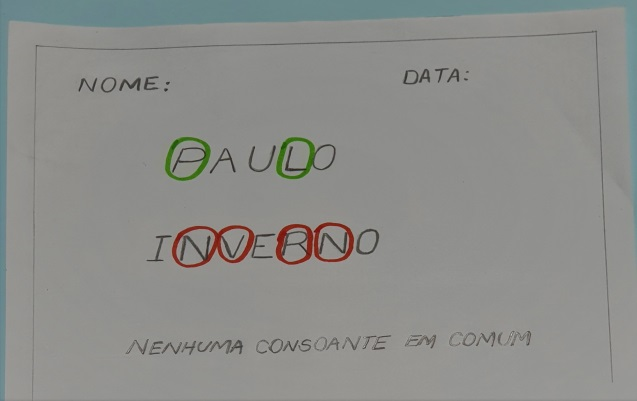 NOME: DATA:
PAULO
INVERNO
NENHUMA CONSOANTE EM COMUM